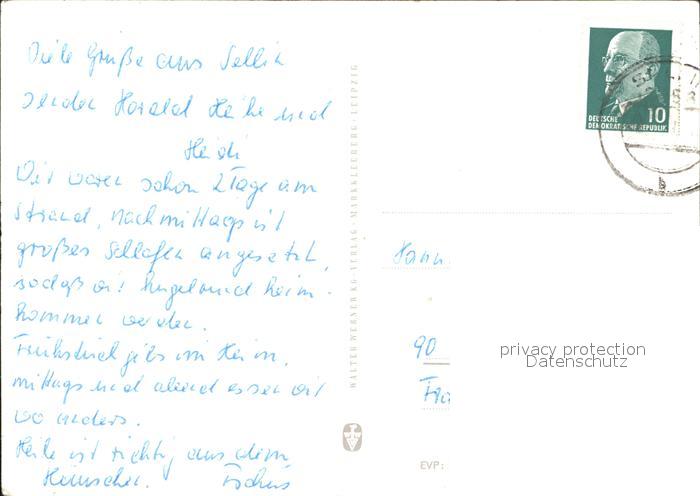 Viele Grüße aus Sellin
senden Harald Heike und
Heidi
Wir waren schon 2 Tage am
Strand, nachmittags ist
großes Schlafen angesetzt,
sodaß wir kugelrund heim-
kommen werden.
Frühstück gibs im Heim,
mittags und abend essen wir
wo anders.
Heike ist richtig aus dem
Häuschen.
WALTER WERNER KG · VERLAG · MARKKLEEBERG · LEIPZIG
10
DEUTSCHE
DEMOKRATISCHE REPUBLIK
b
90
privacy protection
Datenschutz
EVP: